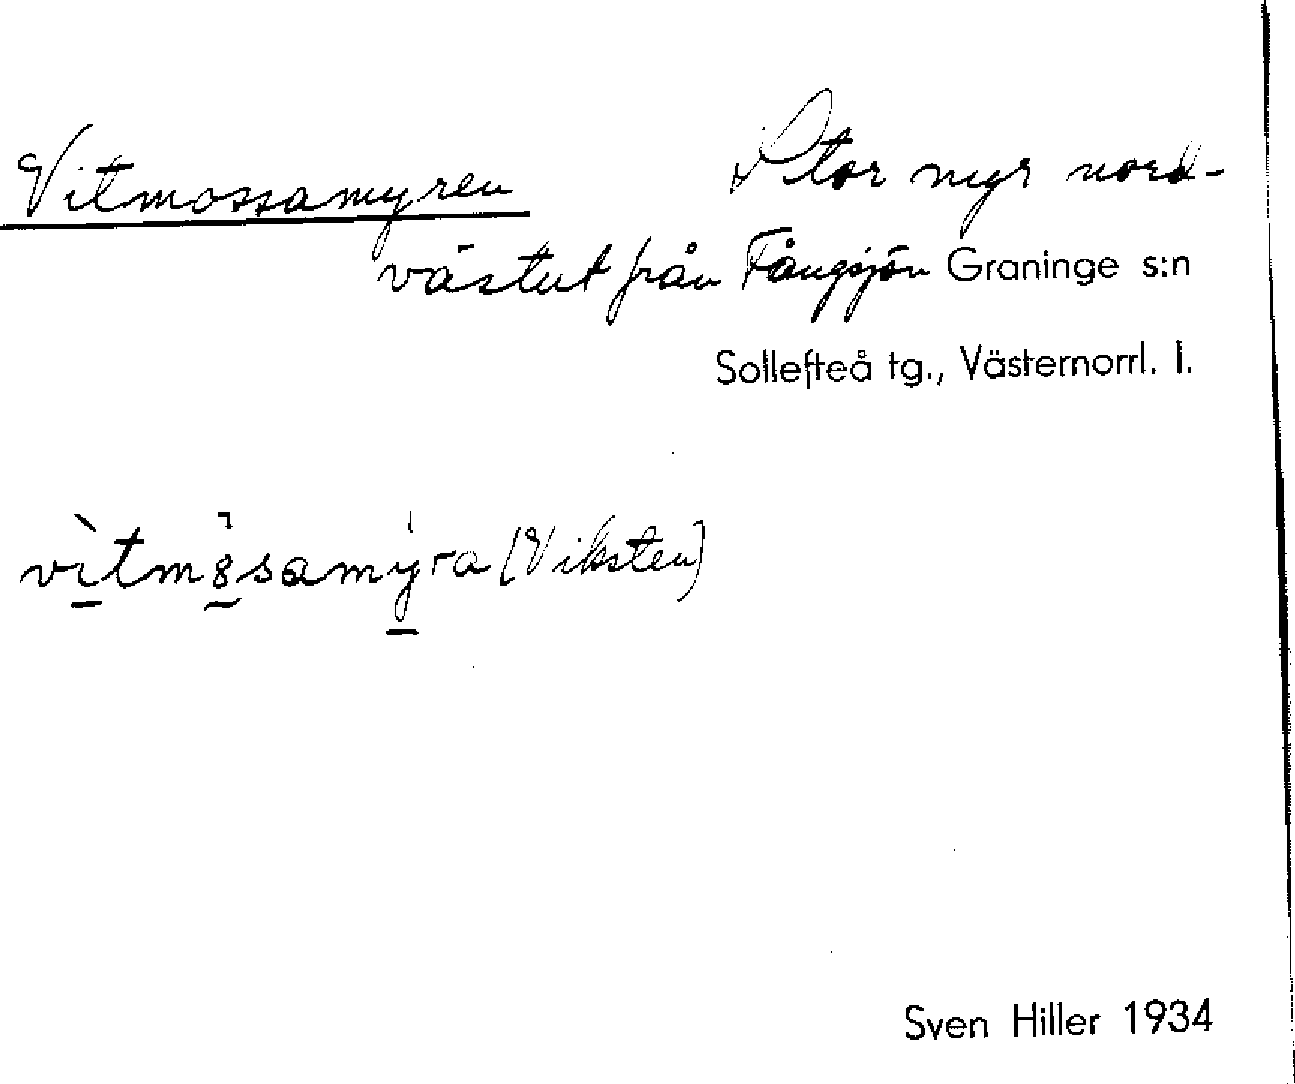 Vitmossamyren Stor myr nord-
västut från Fångsjön Graninge s:n
Sollefteå tg., Västernorrl. l.
vìtmȣsamyra (Viksten)
Sven Hiller 1934